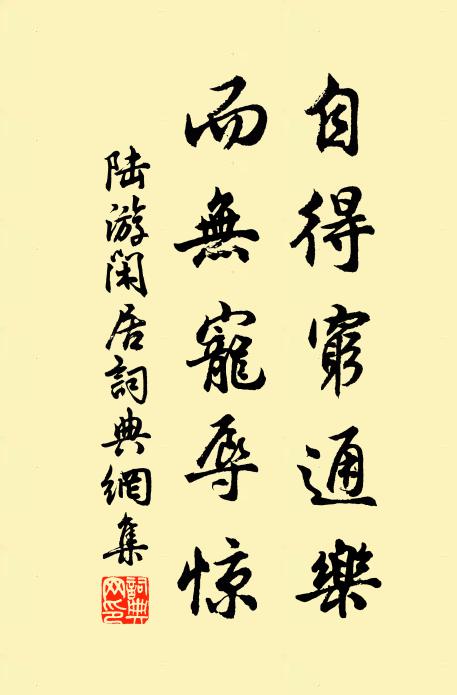 自得窮通樂
而無寵辱惊
陸游閑居詞典網集
詞典網印